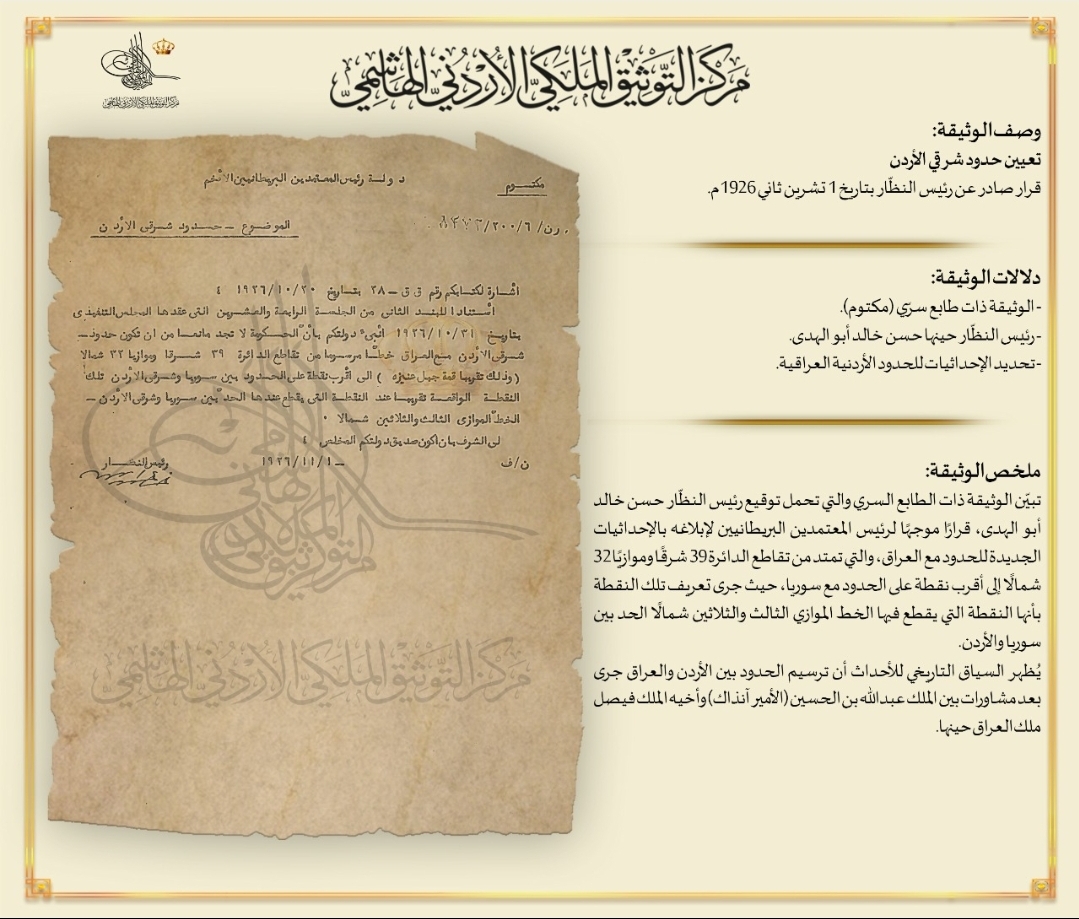 مركز التوثيق الملكي الأردني الهاشمي
مركز التوثيق الملكي الأردني الهاشمي
وصف الوثيقة:
تعيين حدود شرقي الأردن
قرار صادر عن رئيس النظّار بتاريخ 1 تشرين ثاني 1926 م.
دلالات الوثيقة:
- الوثيقة ذات طابع سري (مكتوم).
-رئيس النظّار حينها حسن خالد أبو الهدى.
-تحديد الإحداثيات للحدود الأردنية العراقية.
ملخص الوثيقة:
تبيّن الوثيقة ذات الطابع السري والتي تحمل توقيع رئيس النظّار حسن خالد
أبو الهدى، قرارًا موجهًا لرئيس المعتمدين البريطانيين لإبلاغه بالإحداثيات
الجديدة للحدود مع العراق، والتي تمتد من تقاطع الدائرة 39 شرقًا وموازيًا 32
شمالًا إلى أقرب نقطة على الحدود مع سوريا، حيث جرى تعريف تلك النقطة
بأنها النقطة التي يقطع فيها الخط الموازي الثالث والثلاثين شمالًا الحد بين
سوريا والأردن.
يُظهر السياق التاريخي للأحداث أن ترسيم الحدود بين الأردن والعراق جرى
بعد مشاورات بين الملك عبدالله بن الحسين (الأمير آنذاك) وأخيه الملك فيصل
ملك العراق حينها.
مكتوم
دولة رئيس المعتمدين البريطانيين الافخم
رن/٢٠٠/٦/
الموضوع – حدود شرقي الأردن
اشارة لكتابكم رقم ق ق – ٢٨ بتاريخ ١٩٢٦/١٠/٢٠
استنادا للبند الثاني من الجلسة الرابعة والعشرين التي عقدها المجلس التنفيذي
بتاريخ ١٩٢٦/١٠/٣١ انبئ دولتكم بأن الحكومة لا تجد مانعا من ان تكون حدود –
شرقي الأردن مع العراق خطا مرسوما من تقاطع الدائرة ٣٩ شرقا وموازيا ٣٢ شمالا
(وذلك تقريبا قمة جبل عنيزه) الى أقرب نقطة على الحدود بين سوريا وشرقي الأردن تلك
النقطة الواقعة تقريبا عند النقطة التي يقطع عندها الحد بين سوريا وشرقي الأردن –
الخط الموازي الثالث والثلاثين شمالا ٠
لي الشرف بان اكون صديق دولتكم المخلص
ن/ف
١٩٢٦/١١/١
رئيس النظار
مركز التوثيق الملكي الأردني الهاشمي